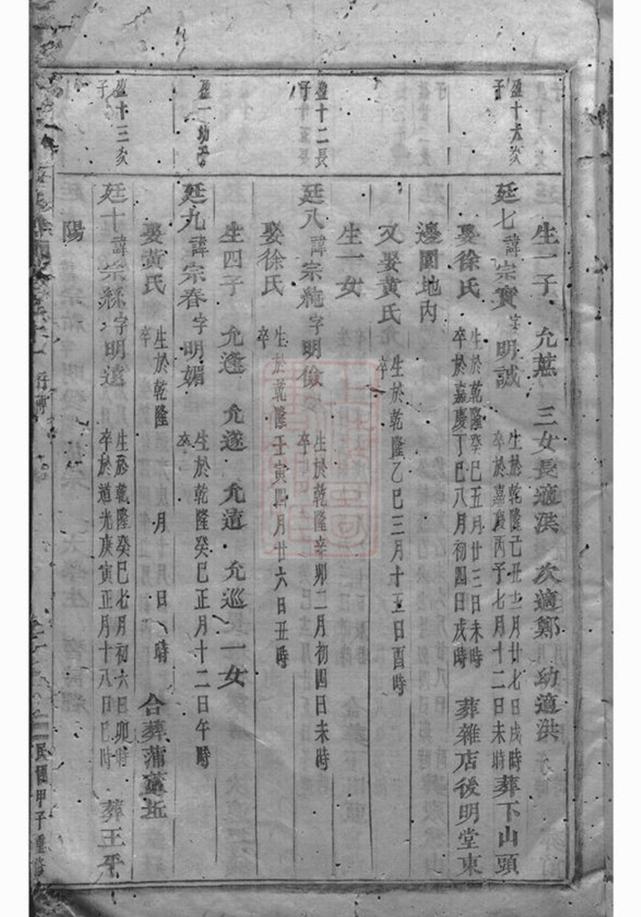 生一子 允燕 三女長適洪 次適鄭 幼適洪
盈十六公子
廷七諱宗寶字明誠 生於乾隆己丑十二月廿七日戌時 卒於嘉慶丙子七月十二日未時 葬下山頭
娶徐氏 生於乾隆癸巳五月廿三日未時 卒於嘉慶丁巳八月初四日戌時 葬雜店後明堂東
邊園地內
又娶黃氏 生於乾隆乙巳三月十五日酉時 卒
生一女
盈十二長子
廷八諱宗純字明儉 生於乾隆辛卯二月初四日未時 卒
娶徐氏 生於乾隆壬寅四月廿六日丑時 卒
生四子 允逢 允遂 允遺 允巡 一女
盈一幼子
廷九諱宗春字明媚 生於乾隆癸巳正月十二日午時 卒
娶黃氏 生於乾隆 月 日 時 卒 合葬蒲蘆坵
盈十三公子
廷十諱宗綵字明遠 生於乾隆癸巳七月初六日卯時 卒於道光庚寅正月十八日巳時 葬王平
陽
民國甲子重修